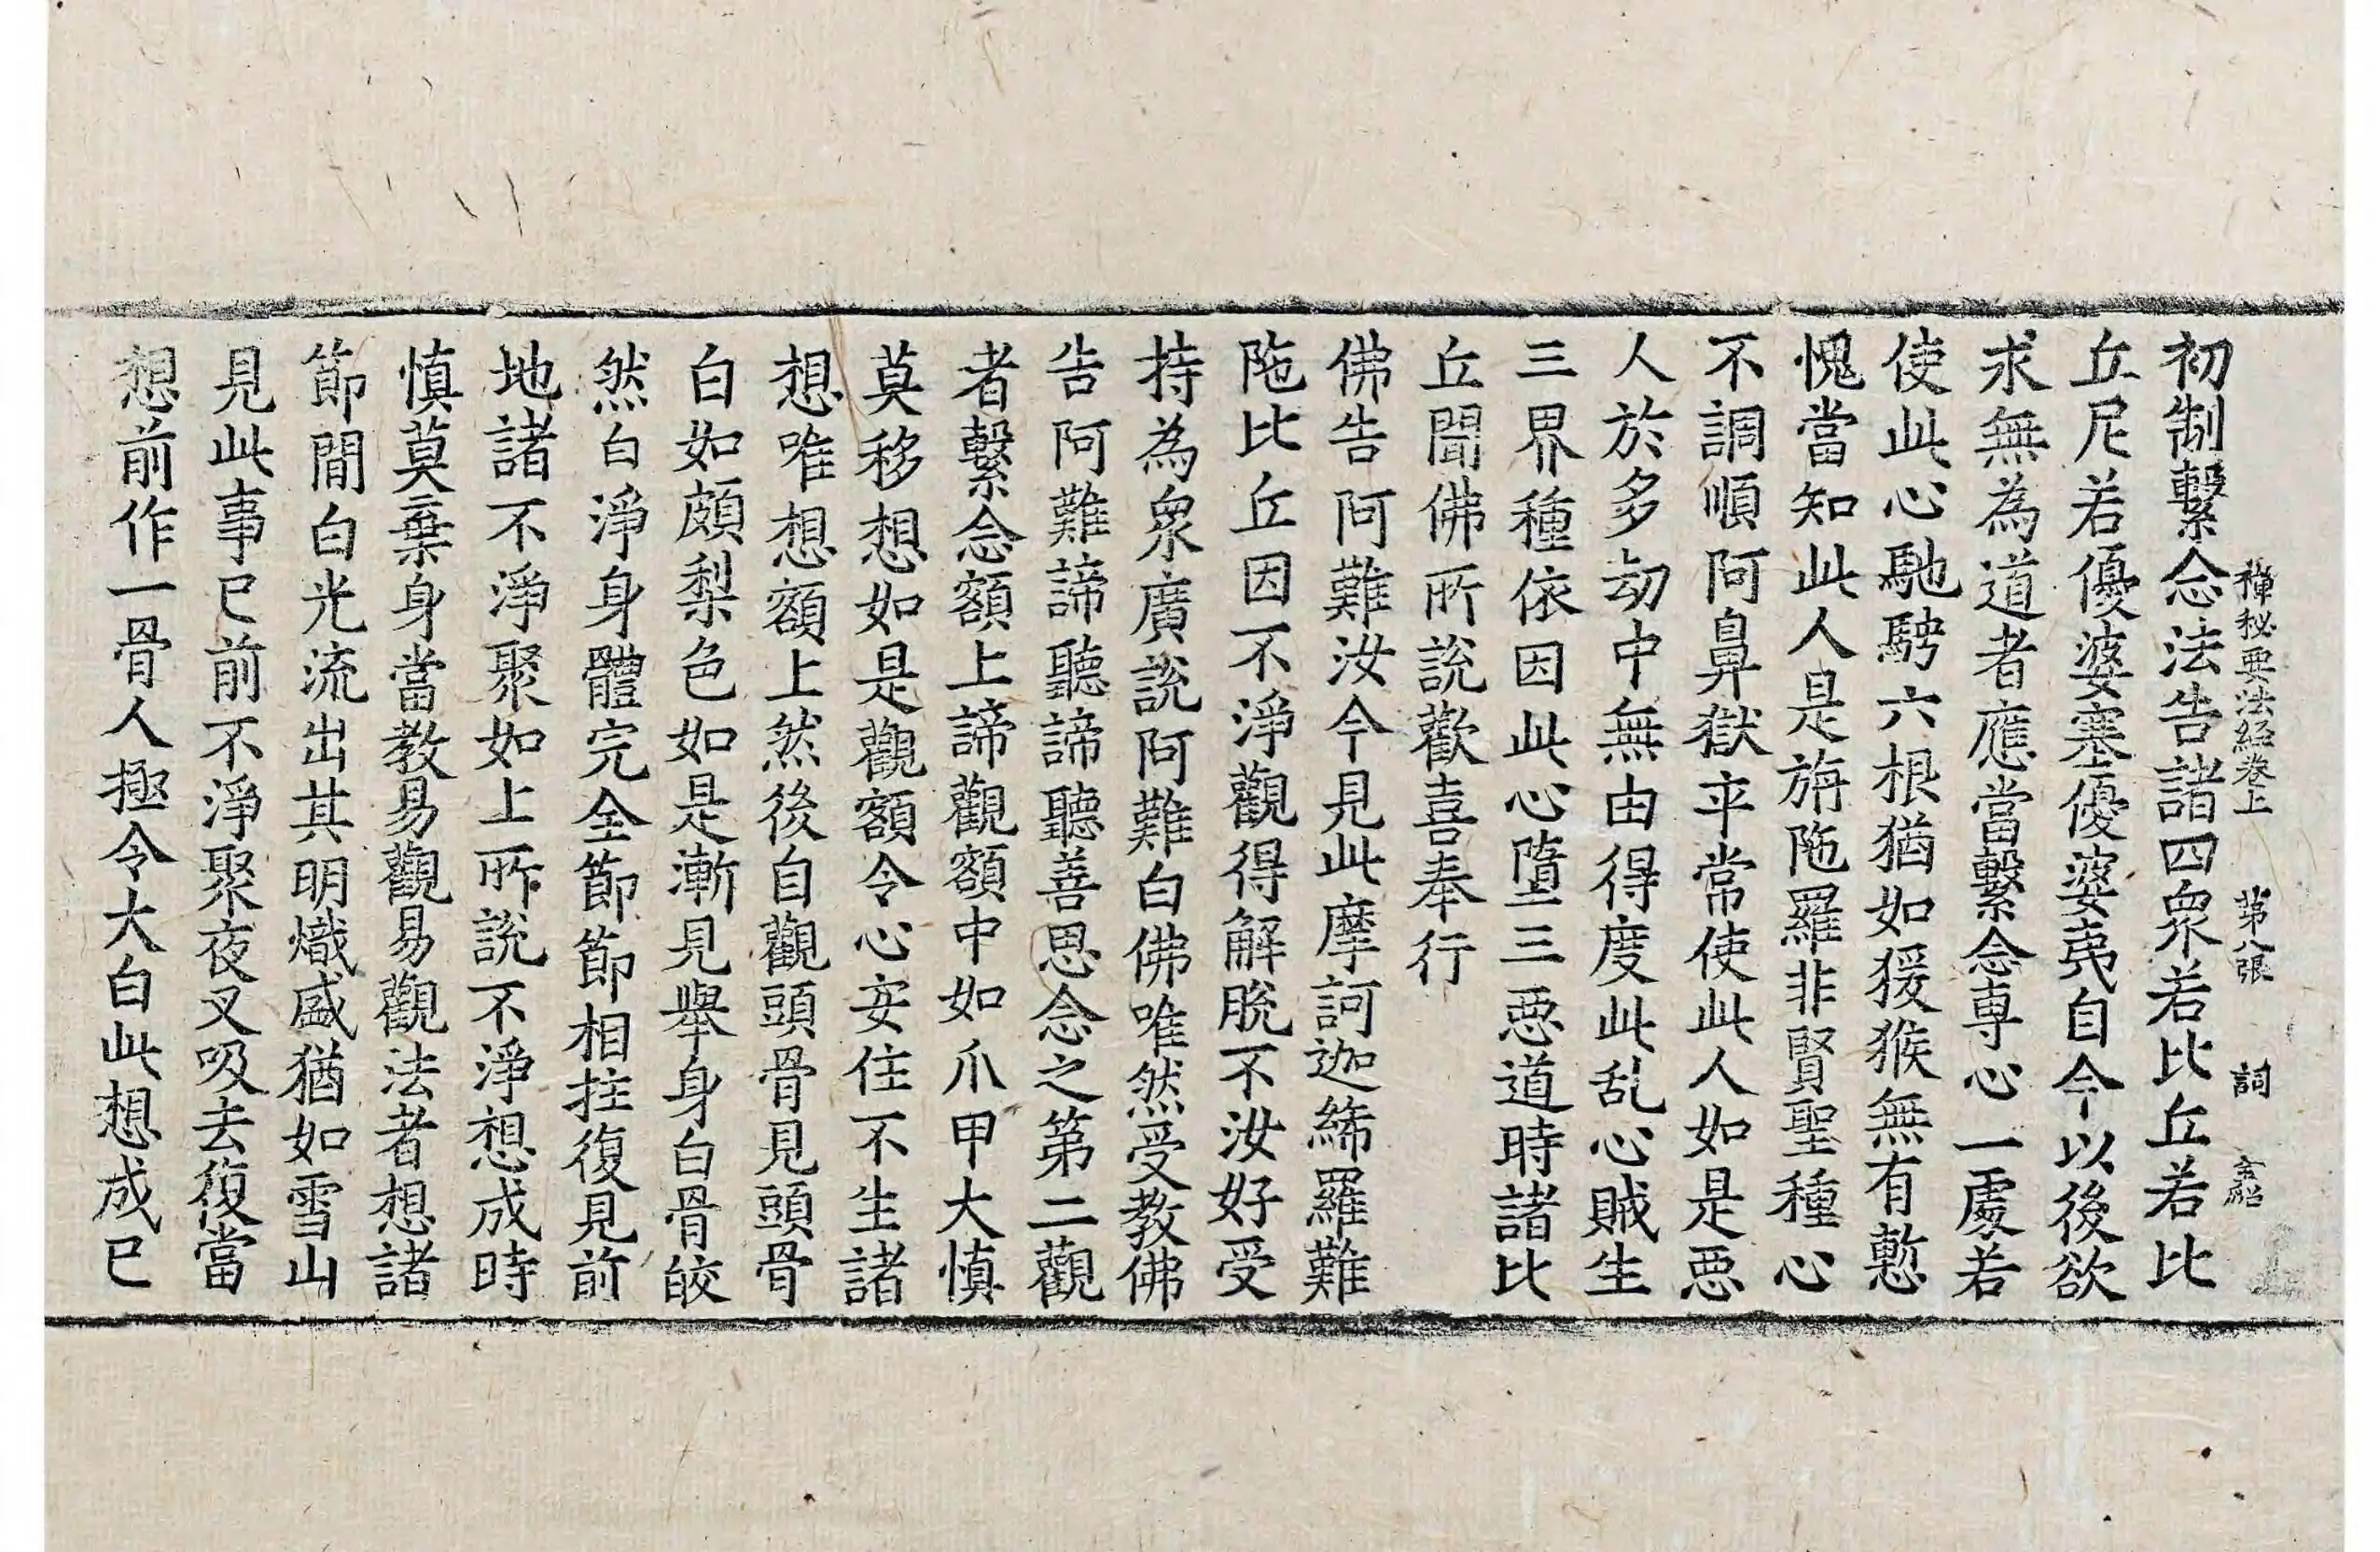 初制繫念法告諸四衆若比丘若比
禪秘要法経卷上 第八張 詞
丘尼若優婆塞優婆夷自今以後欲
求無為道者應當繫念専心一處若
使此心馳騁六根猶如猨猴無有慙
愧當知此人是旃陁羅非賢聖種心
不調順阿鼻獄卒常使此人如是惡
人於多劫中無由得度此乱心賊生
三界種依因此心墮三惡道時諸比
丘聞佛所說歡喜奉行
佛告阿難汝今見此摩訶迦絺羅難
陁比丘因不淨觀得解脫不汝好受
持為衆廣說阿難白佛唯然受教佛
告阿難諦聽諦聽善思念之第二觀
者繫念額上諦觀額中如爪甲大慎
莫移想如是觀額令心安住不生諸
想唯想額上然後自觀頭骨見頭骨
白如頗梨色如是漸見舉身白骨皎
然白淨身體完全節節相拄復見前
地諸不淨聚如上所說不淨想成時
慎莫棄身當教易觀易觀法者想諸
節間白光流出其明熾盛猶如雪山
見此事已前不淨聚夜叉吸去復當
想前作一骨人極令大白此想成已